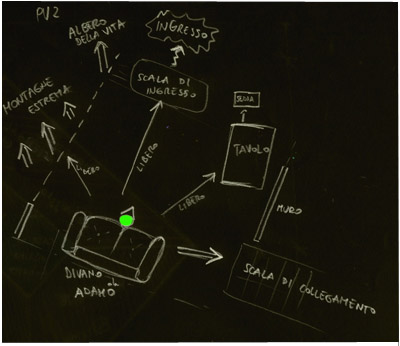 PV2
ALBERO
DELLA VITA
INGRESSO
MONTAGNE
ESTREMA
SCALA DI
INGRESSO
SEDIA
TAVOLO
LIBERO
LIBERO
LIBERO
MURO
DIVANO
ADAMO
SCALA DI COLLEGAMENTO